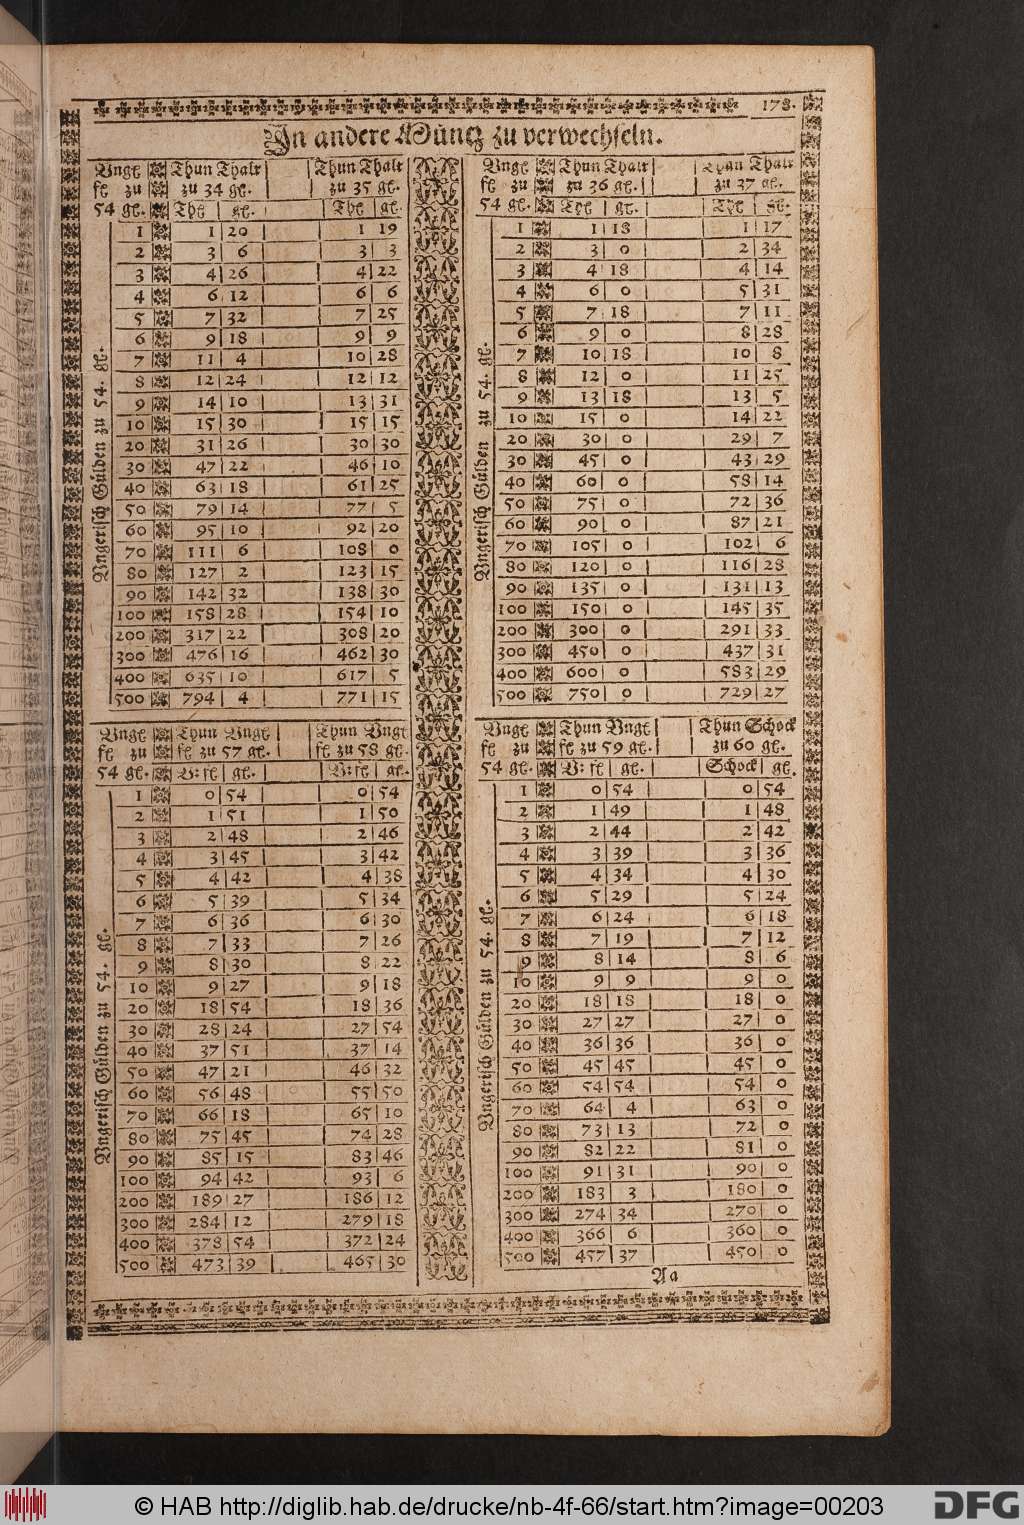 178.
In andere Müntz zu verwechseln.
Vngl Thun Thalr Thun Thalr
fl zu zu 34 gl. zu 35 gl.
54 gl. Thl gl. Thl gl.
1 1 20 1 19
2 3 6 3 3
3 4 26 4 22
4 6 12 6 6
5 7 32 7 25
6 9 18 9 9
7 11 4 10 28
8 12 24 12 12
9 14 10 13 31
10 15 30 15 15
20 31 26 30 30
30 47 22 46 10
40 63 18 61 25
50 79 14 77 5
60 95 10 92 20
70 111 6 108 0
80 127 2 123 15
90 142 32 138 30
100 158 28 154 10
200 317 22 308 20
300 476 16 462 30
400 635 10 617 5
500 794 4 771 15
Vngerisch Gülden zu 54. gl.
Vngl Thun Thalr Thun Thalr
fl zu zu 36 gl. zu 37 gl.
54 gl. Thl gl. Thl gl.
1 1 18 1 17
2 3 0 2 34
3 4 18 4 14
4 6 0 5 31
5 7 18 7 11
6 9 0 8 28
7 10 18 10 8
8 12 0 11 25
9 13 18 13 5
10 15 0 14 22
20 30 0 29 7
30 45 0 43 29
40 60 0 58 14
50 75 0 72 36
60 90 0 87 21
70 105 0 102 6
80 120 0 116 28
90 135 0 131 13
100 150 0 145 35
200 300 0 291 33
300 450 0 437 31
400 600 0 583 29
500 750 0 729 27
Vngerisch Gülden zu 54. gl.
Vngl Thun Vngl Thun Vngl
fl zu fl zu 57 gl. fl zu 58 gl.
54 gl. V: fl gl. V: fl gl.
1 0 54 0 54
2 1 51 1 50
3 2 48 2 46
4 3 45 3 42
5 4 42 4 38
6 5 39 5 34
7 6 36 6 30
8 7 33 7 26
9 8 30 8 22
10 9 27 9 18
20 18 54 18 36
30 28 24 27 54
40 37 51 37 14
50 47 21 46 32
60 56 48 55 50
70 66 18 65 10
80 75 45 74 28
90 85 15 83 46
100 94 42 93 6
200 189 27 186 12
300 284 12 279 18
400 378 54 372 24
500 473 39 465 30
Vngerisch Gülden zu 54. gl.
Vngl Thun Vngl Thun Schock
fl zu fl zu 59 gl. zu 60 gl.
54 gl. V: fl gl. Schock gl.
1 0 54 0 54
2 1 49 1 48
3 2 44 2 42
4 3 39 3 36
5 4 34 4 30
6 5 29 5 24
7 6 24 6 18
8 7 19 7 12
9 8 14 8 6
10 9 9 9 0
20 18 18 18 0
30 27 27 27 0
40 36 36 36 0
50 45 45 45 0
60 54 54 54 0
70 64 4 63 0
80 73 13 72 0
90 82 22 81 0
100 91 31 90 0
200 183 3 180 0
300 274 34 270 0
400 366 6 360 0
500 457 37 450 0
Vngerisch Gülden zu 54. gl.
Aa
© HAB http://diglib.hab.de/drucke/nb-4f-66/start.htm?image=00203
DFG